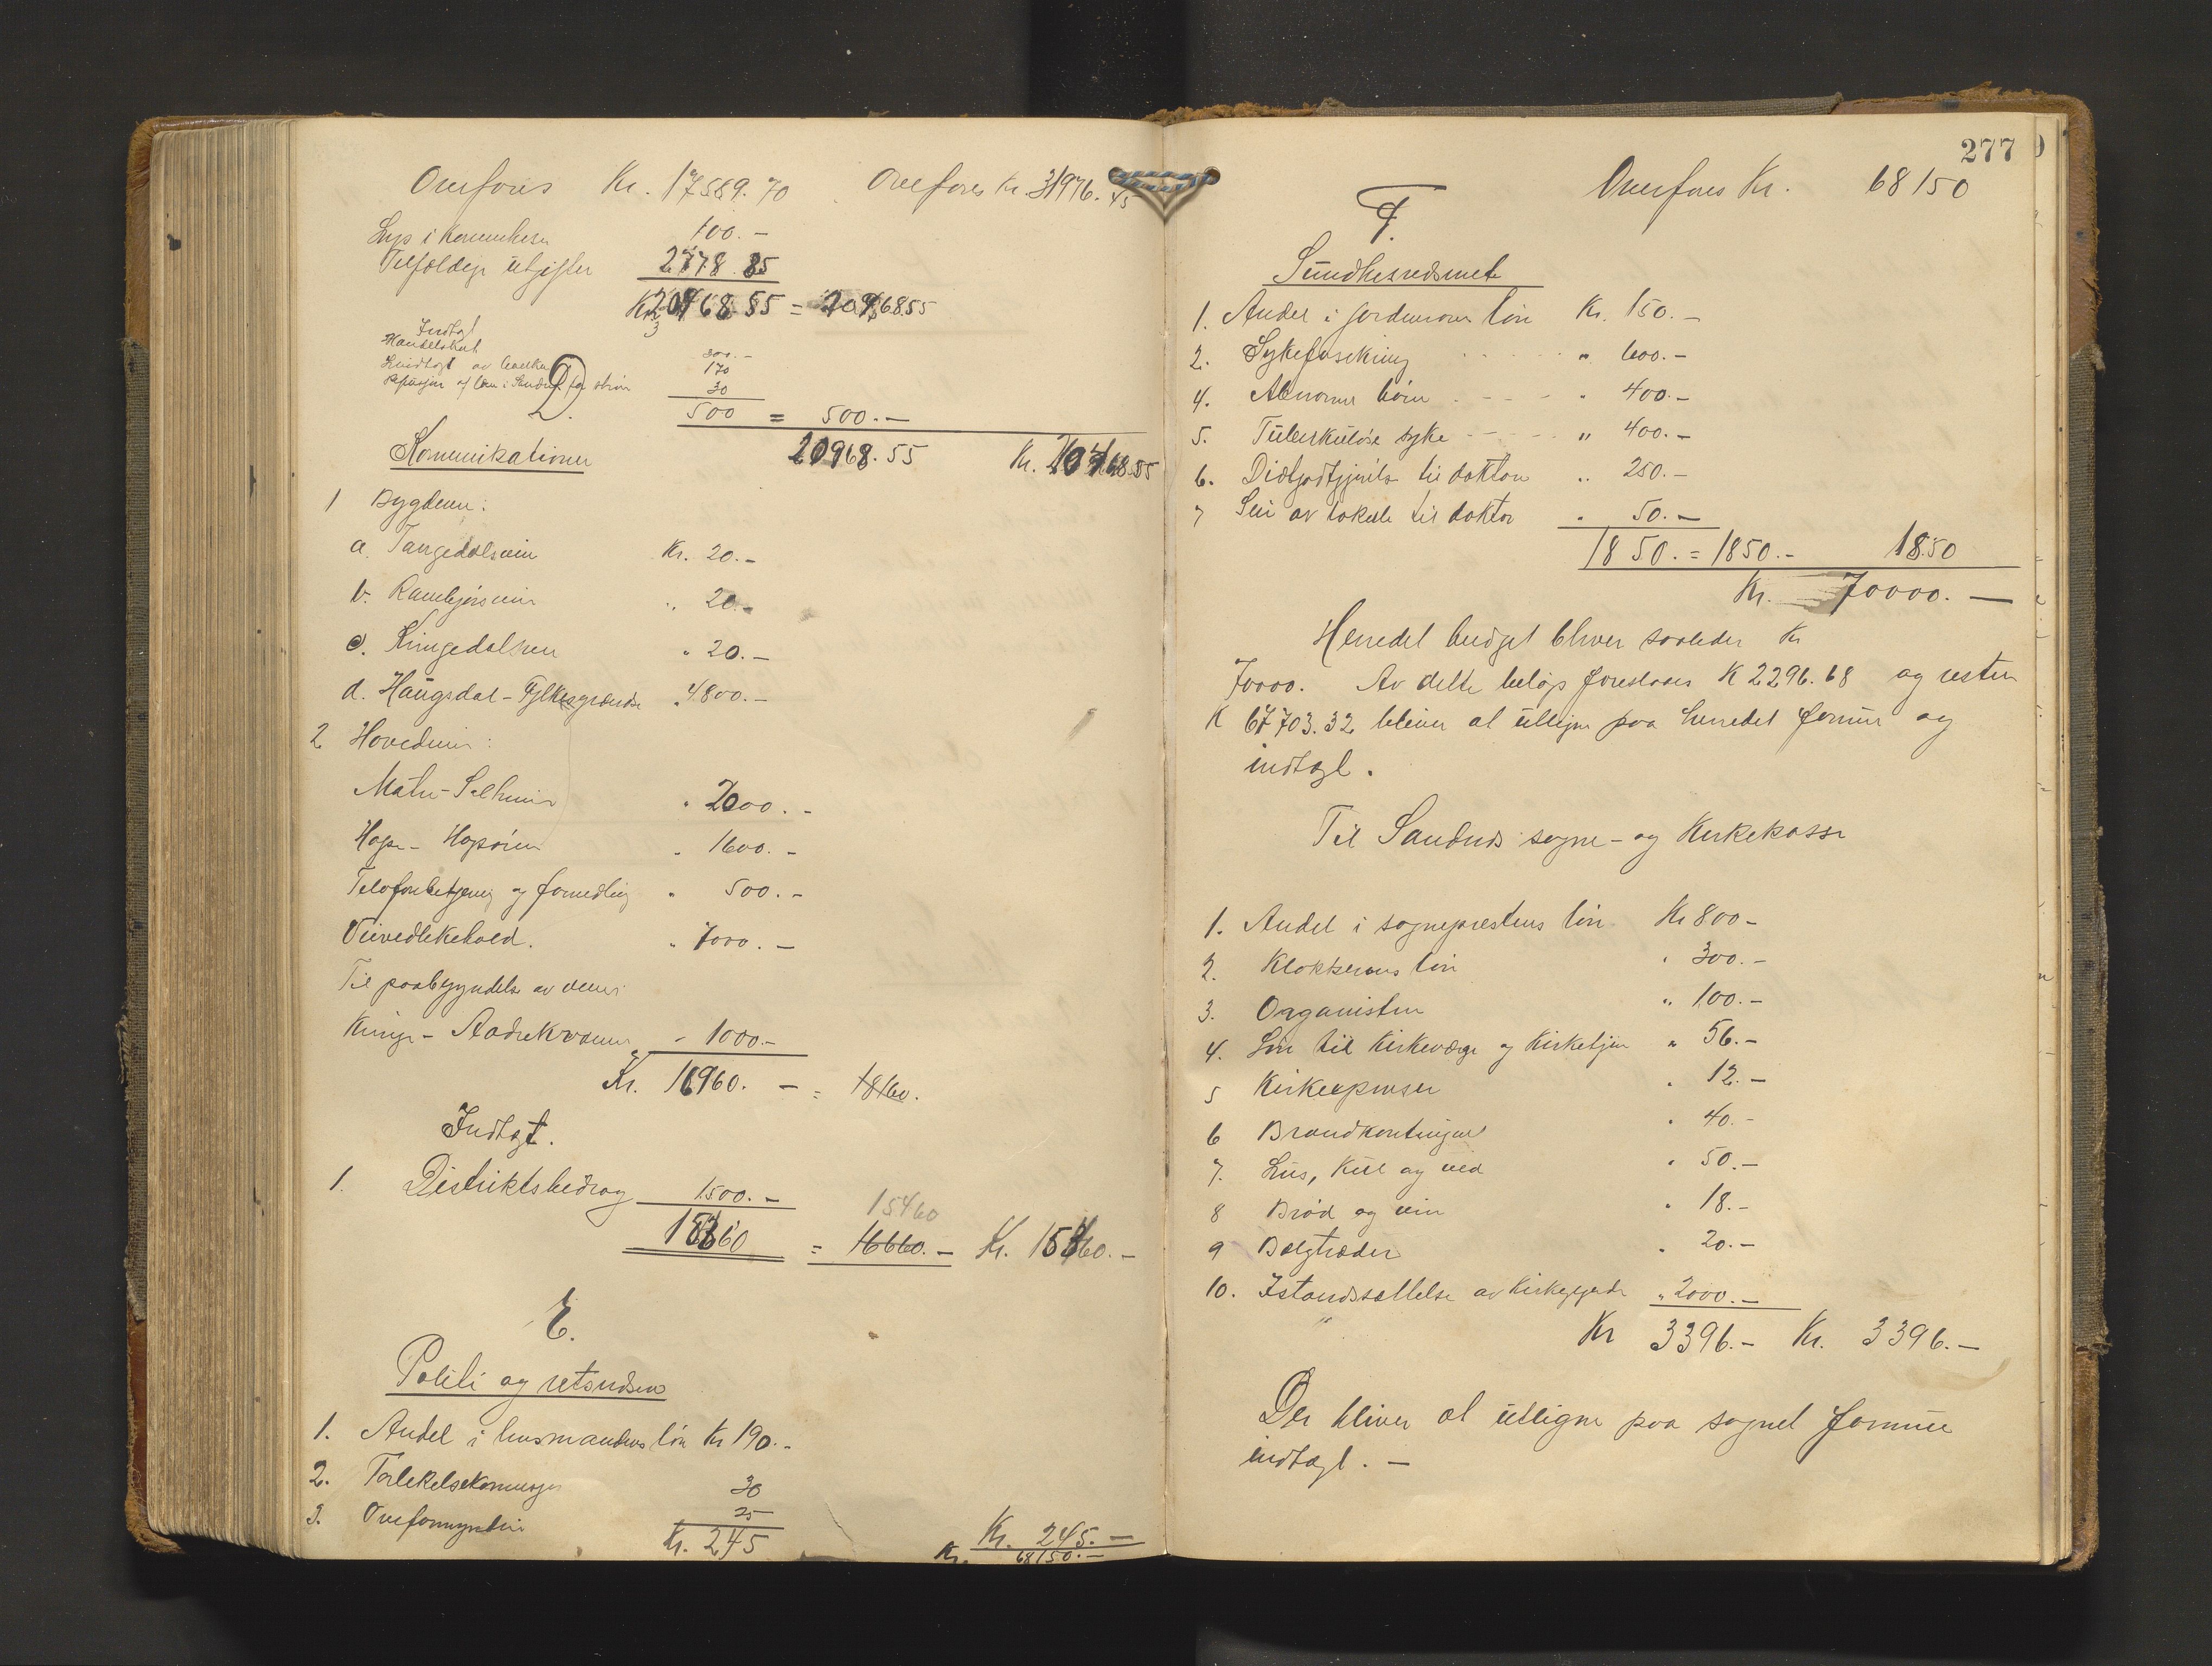 Overføres Kr. 17589.70 Overføres Kr. 31976.45
Lys i
Tilfældige utgifter 2778.85
100.-
Kr. = 
Indtægt
Handelskat 300.-
Indtægt av 170
30
500 = 500.-
D.
Kommunikationer 20968.55 Kr.
1 Bygdeveier:
a. Tangedalsvein Kr. 20.-
b. Rambjørsvein " 20.-
c. Kringedalsvein " 20.-
d. Haugsdal - Fylkesgrændse " 4800.-
2 Hovedveier:
Matre - " 2000.-
Hope - Hopsøien " 1600.-
Telefonbetjening og formedling " 500.-
Veivedlikehold. " 7000.-
Til paabegyndelse av veien:
Kringe - Aadnekvamme " 1000.-
Kr. 16960.- = 18160.
Indtægt.
1. Distriktsbedrag 1500.-
15460
= 16660.- Kr. 15460.-
E.
Politi og retsvæsen
1. Andel i lensmandens løn Kr 190.-
2. Forlikelseskommisjon 30
3. Overformynderi 25
Kr. 245 Kr. 245.-
Kr. 68150.-
277
Overføres Kr. 68150
F.
Sundhetsvæsenet
1. Andel i jordmorens løn Kr. 150.-
2. Sykeforsikring " 600.-
4. Abnorme børn " 400.-
5. Tuberkuløse syke " 400.-
6. til doktoren " 250.-
7 Leie av lokale til doktor " 50.-
1850. = 1850.- 1850
Kr. 70000.-
Herredet budget bliver saaledes Kr
70000. Av dette beløp foreslaaes K 2296.68 og resten
K 67703.32 bliver at utligne paa herredet formue og
indtægt.
Til Sandnes sogne- og Kirkekasse
1. Andel i sogneprestens løn Kr 800-
2. Klokkerens løn " 300.-
3. Organisten " 100.-
4. Løn til Kirkeverge og Kirketjen " 56.-
5 Kirkerepenser " 12.-
6 Brandkontingent " 40.-
7. Lys, Kul og ved " 50.-
8 Brød og vin " 18.-
9 Bælgtræder " 20.-
10. Istandsættelse av Kirkegaarde " 2000.-
Kr 3396.- Kr. 3396.-
Der bliver at utligne paa sognet formue
indtægt. -